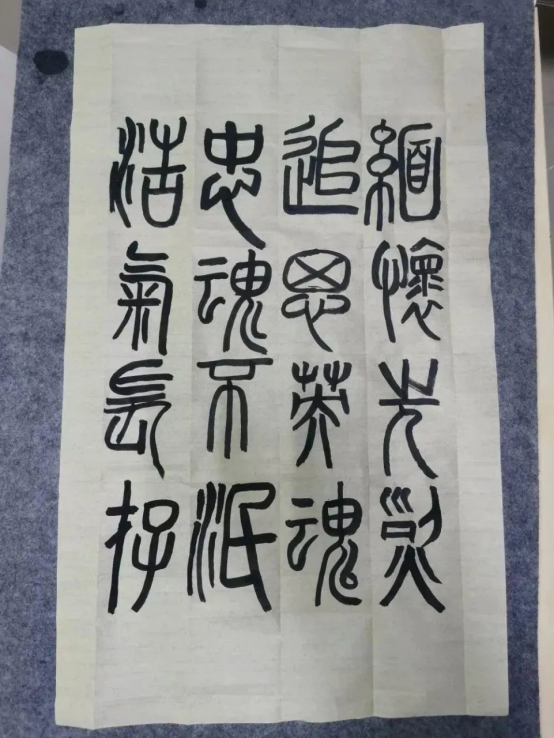 緬懷先烈
追思英魂
忠魂不泯
浩氣長存